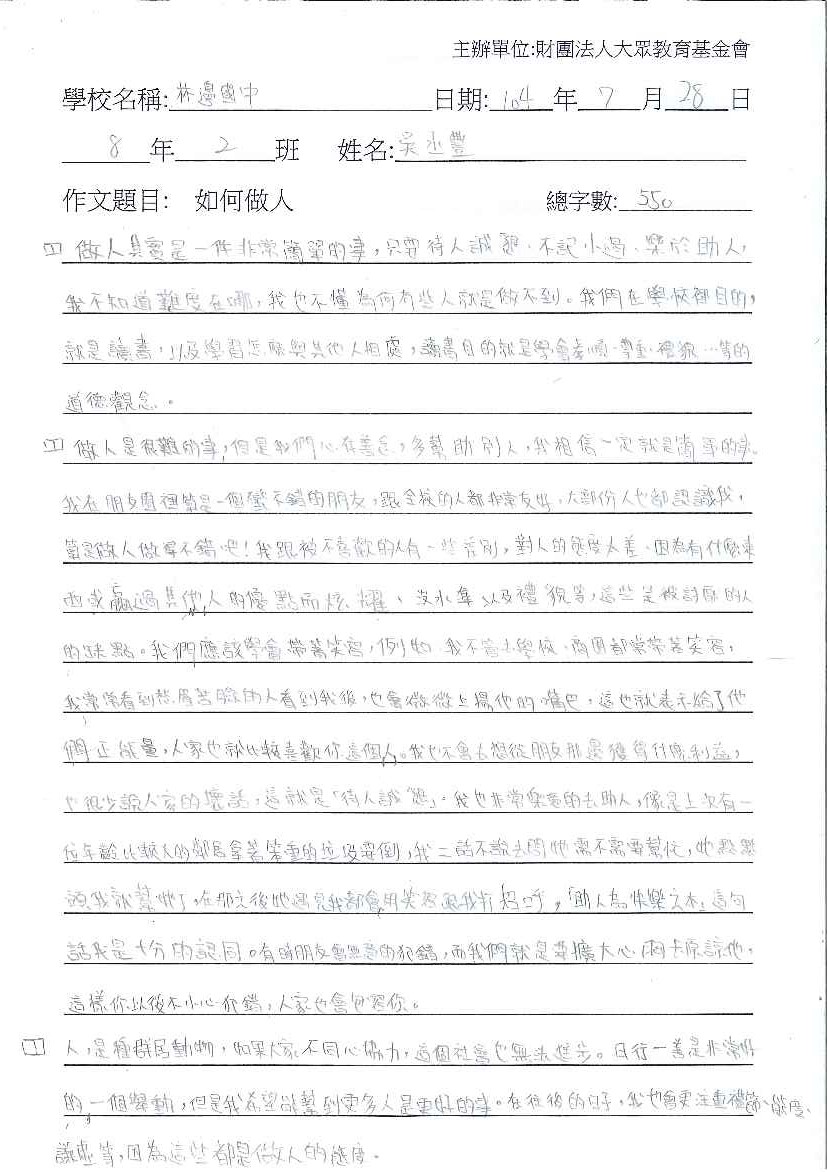 主辦單位:財團法人大眾教育基金會
學校名稱:林邊國中 日期:104年7月28日
8年2班 姓名:吳丞豐
作文題目: 如何做人 總字數:550
做人其實是一件非常簡單的事,只要待人誠懇、不記小過、樂於助人,
我不知道難度在哪,我也不懂為何有些人就是做不到。我們在學校都目的,
就是讀書,以及學習怎麼與其他人相處,讀書目的就是學會孝順、尊重、禮貌…等的
道德觀念。
做人是很難的事,但是我們心存善念,多幫助別人,我相信一定就是簡單的事。
我在朋友圈裡算是一個蠻不錯的朋友,跟全校的人都非常友好,大部份人也都認識我,
算是做人做得不錯吧!我跟被不喜歡的人有一些差別,對人的態度太差、因為有什麼東
西或贏過其他人的優點而炫耀、沒水準以及禮貌等,這些是被討厭的人
的缺點。我們應該學會帶著笑容,例如 我不管去學校、商圈都常帶著笑容,
我常常看到愁眉苦臉的人看到我後,也會微微上揚他的嘴巴,這也就表示給了他
們正能量,人家也就比較喜歡你這個人。我也不會去想從朋友那邊獲得什麼利益,
也很少說人家的壞話,這就是「待人誠懇」。我也非常樂意的去助人,像是上次有一
位年齡比較大的鄰居拿著笨重的垃圾要倒,我二話不說去問她需不需要幫忙,她點點
頭我就幫她了,在那之後她遇見我都會用笑容跟我打招呼,「助人為快樂之本」這句
話我是十分的認同。有時朋友會無意的犯錯,而我們就是要擴大心胸去原諒他,
這樣你以後不小心犯錯,人家也會包容你。
人,是種群居動物,如果大家不同心協力,這個社會也無法進步。日行一善是非常好
的一個舉動,但是我希望能幫到更多人是更好的事。在往後的日子,我也會更注重禮節、態度、
謙虛等,因為這些都是做人的態度。